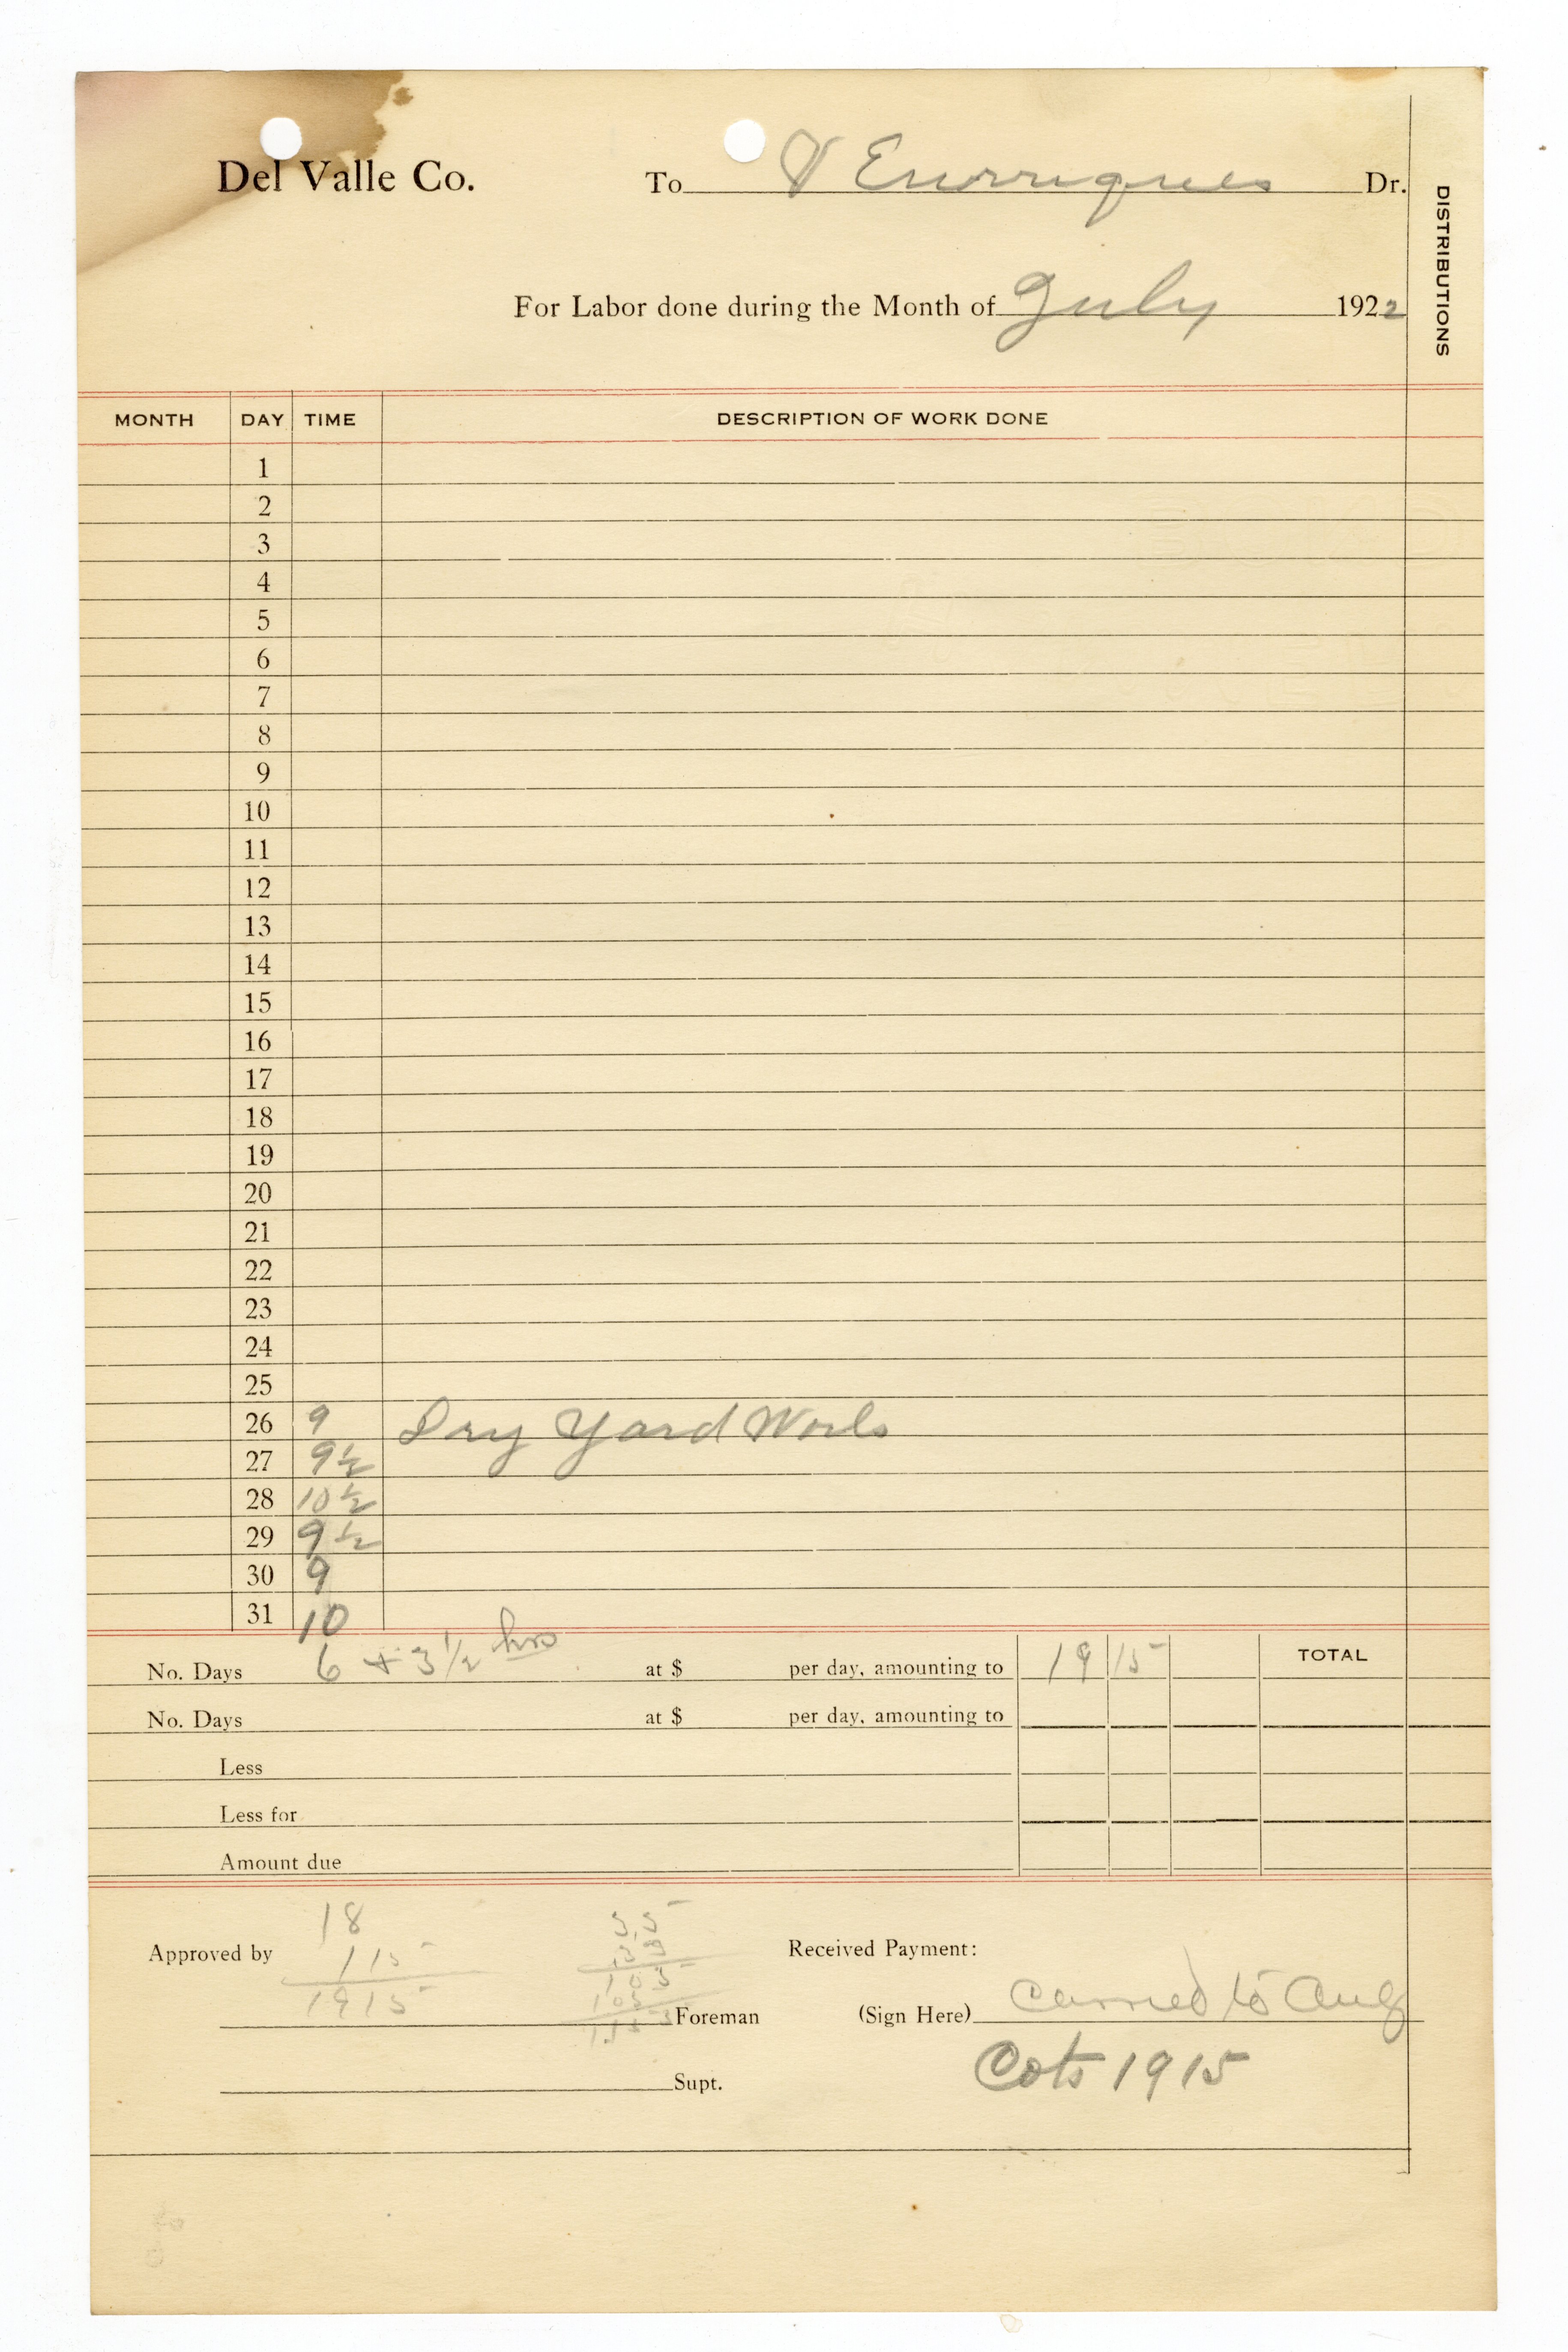 Del Valle Co. To V Enurriques Dr.
DISTRIBUTIONS
For Labor done during the Month of July 1922
MONTH DAY TIME DESCRIPTION OF WORK DONE
1
2
3
4
5
6
7
8
9
10
11
12
13
14
15
16
17
18
19
20
21
22
23
24
25
26 9 Dry Yard Work
27 9 1/2
28 10 1/2
29 9 1/2
30 9
31 10
No. Days 6 + 3 1/2 hrs at $ per day, amounting to 19 15 TOTAL
No. Days at $ per day, amounting to
Less
Less for
Amount due
18
115
1915
Approved by
Foreman
Supt.
Received Payment:
(Sign Here) Carried to Aug
Cots 1915